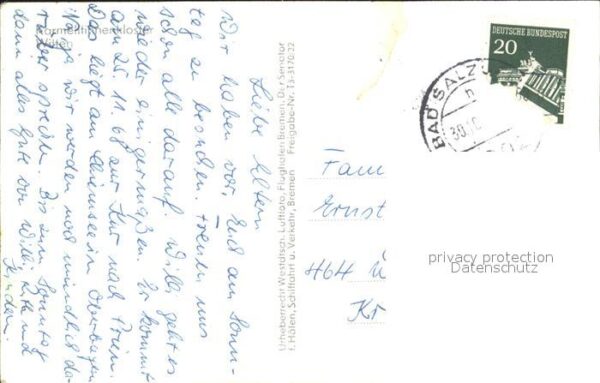 Karmeliterinnenkloster
Witten
Liebe Eltern
Wir haben vor, Euch am Sonn-
tag zu besuchen. Freuen uns
schon alle darauf. Willi geht es
wieder einigermaßen. Er kommt
am 25.11.68 zur Kur nach Prien.
Das liegt am Chiemsee in Oberbayern
Na ja wir werden noch mündlich da-
rüber sprechen. Bis zum Sonntag
dann alles Gute von Willi, und
Kinder.
Urheberrecht Westdtsch. Luftfoto, Flughafen Bremen, Der Senator
f. Häfen, Schiffahrt u. Verkehr, Bremen Freigabe-Nr. 13-3170-22
DEUTSCHE BUNDESPOST
20
BAD SALZU
30.10.
Fam
Ernst
464
Kr
privacy protection
Datenschutz